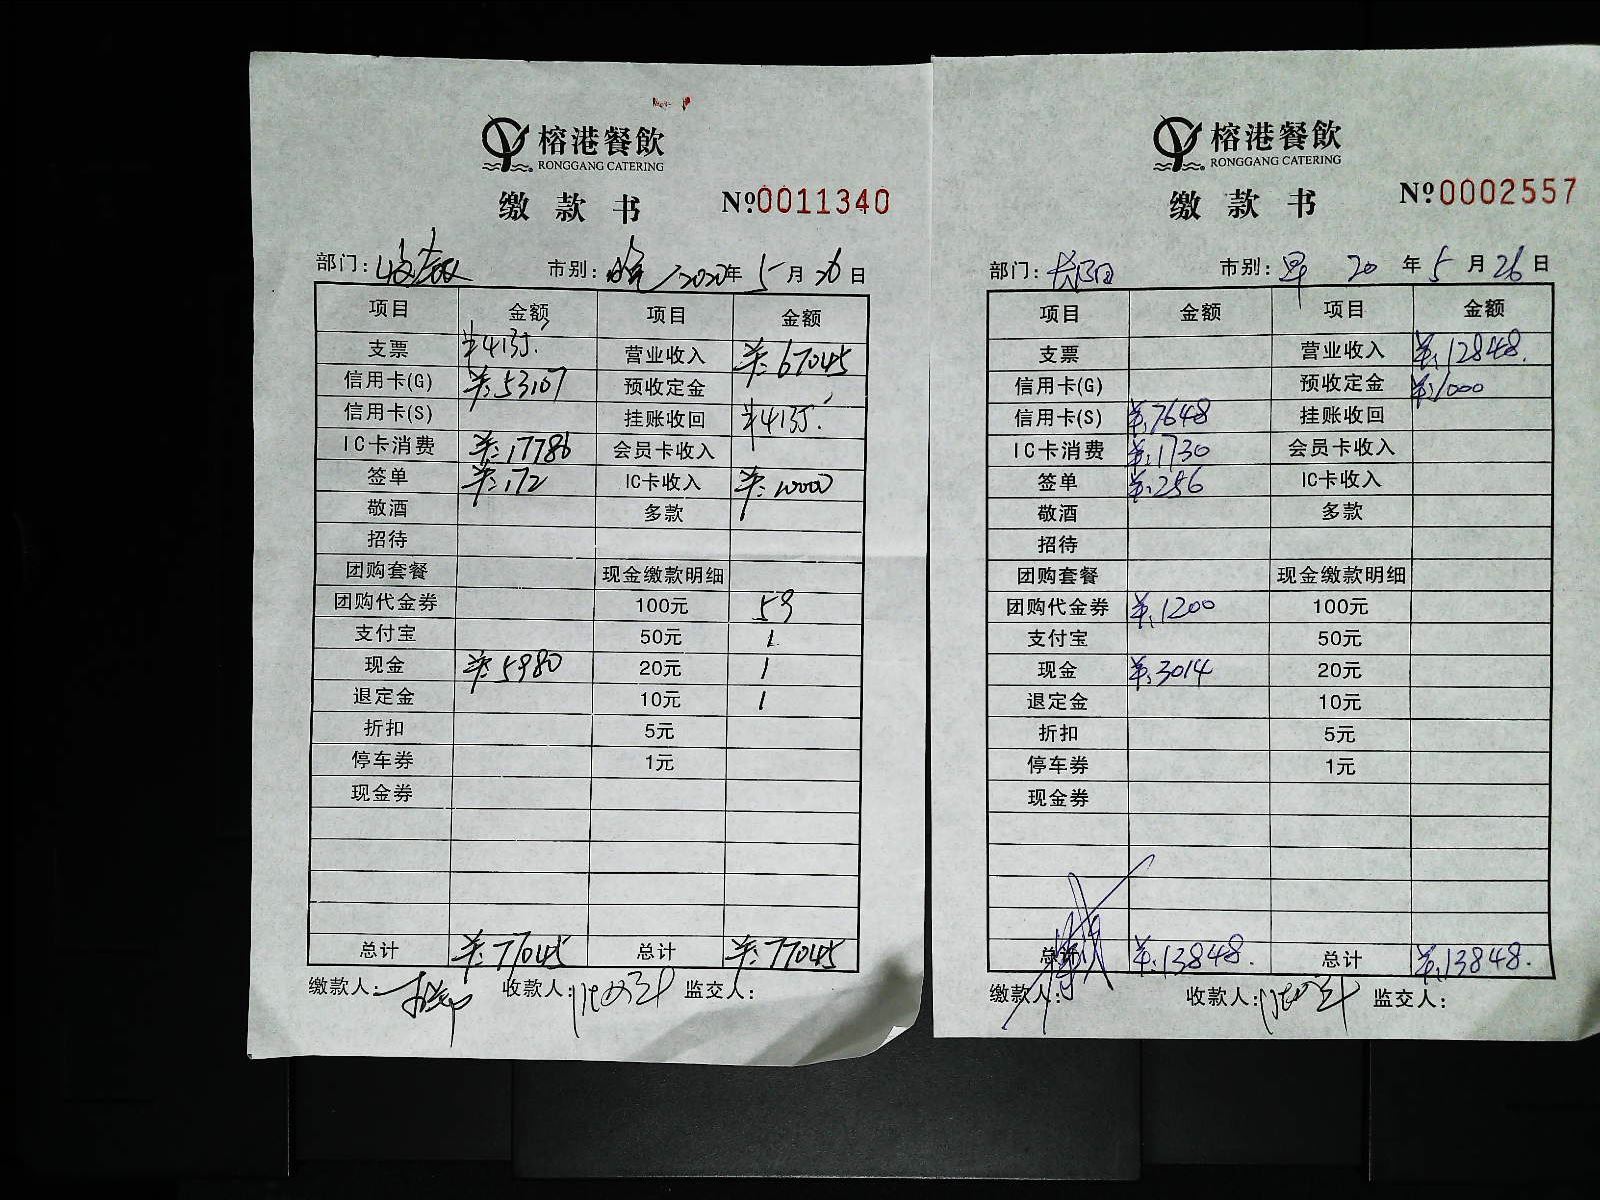 榕港餐飲
RONGGANG CATERING
缴款书 №0011340
部门: 市别: 晚 2020年 5月 26日
项目 金额 项目 金额
支票 ¥4135. 营业收入 ¥:67045
信用卡(G) ¥:53107 预收定金
信用卡(S) 挂账收回 ¥4135.
IC卡消费 ¥:17786 会员卡收入
签单 ¥:172 IC卡收入 ¥:10000
敬酒 多款
招待
团购套餐 现金缴款明细
团购代金券 100元 59
支付宝 50元 1
现金 ¥:5980 20元 1
退定金 10元 1
折扣 5元
停车券 1元
现金券
总计 ¥:77045 总计 ¥:77045
缴款人: 收款人: 监交人:
榕港餐飲
RONGGANG CATERING
缴款书 №0002557
部门: 市别: 早 20年 5月 26日
项目 金额 项目 金额
支票 营业收入 ¥:12848.
信用卡(G) 预收定金 ¥:1000
信用卡(S) ¥:7648 挂账收回
IC卡消费 ¥:1730 会员卡收入
签单 ¥:256 IC卡收入
敬酒 多款
招待
团购套餐 现金缴款明细
团购代金券 ¥:1200 100元
支付宝 50元
现金 ¥:3014 20元
退定金 10元
折扣 5元
停车券 1元
现金券
总计 ¥:13848. 总计 ¥:13848.
缴款人: 收款人: 监交人: